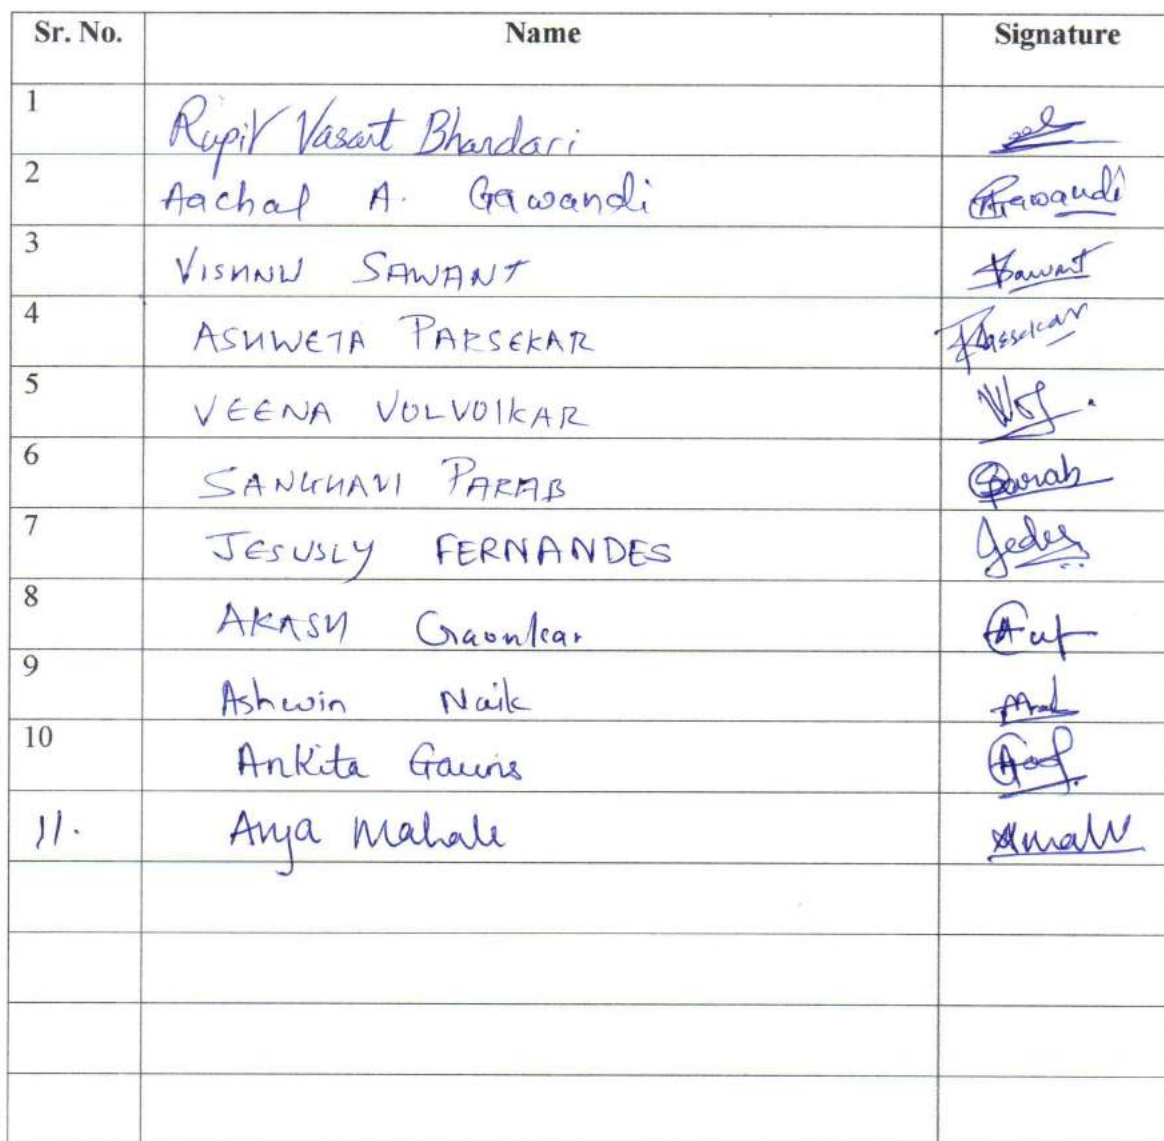 Sr. No. Name Signature
1 Rupit Vasant Bhandari
2 Aachal A. Gawandi Gawandi
3 VISHNU SAWANT Sawant
4 ASHWETA PARSEKAR Parsekar
5 VEENA VOLVOIKAR
6 SANGHAVI PARAB Parab
7 JESUSLY FERNANDES
8 AKASH Gaonkar
9 Ashwin Naik
10 Ankita Gauns
11. Anja Mahale